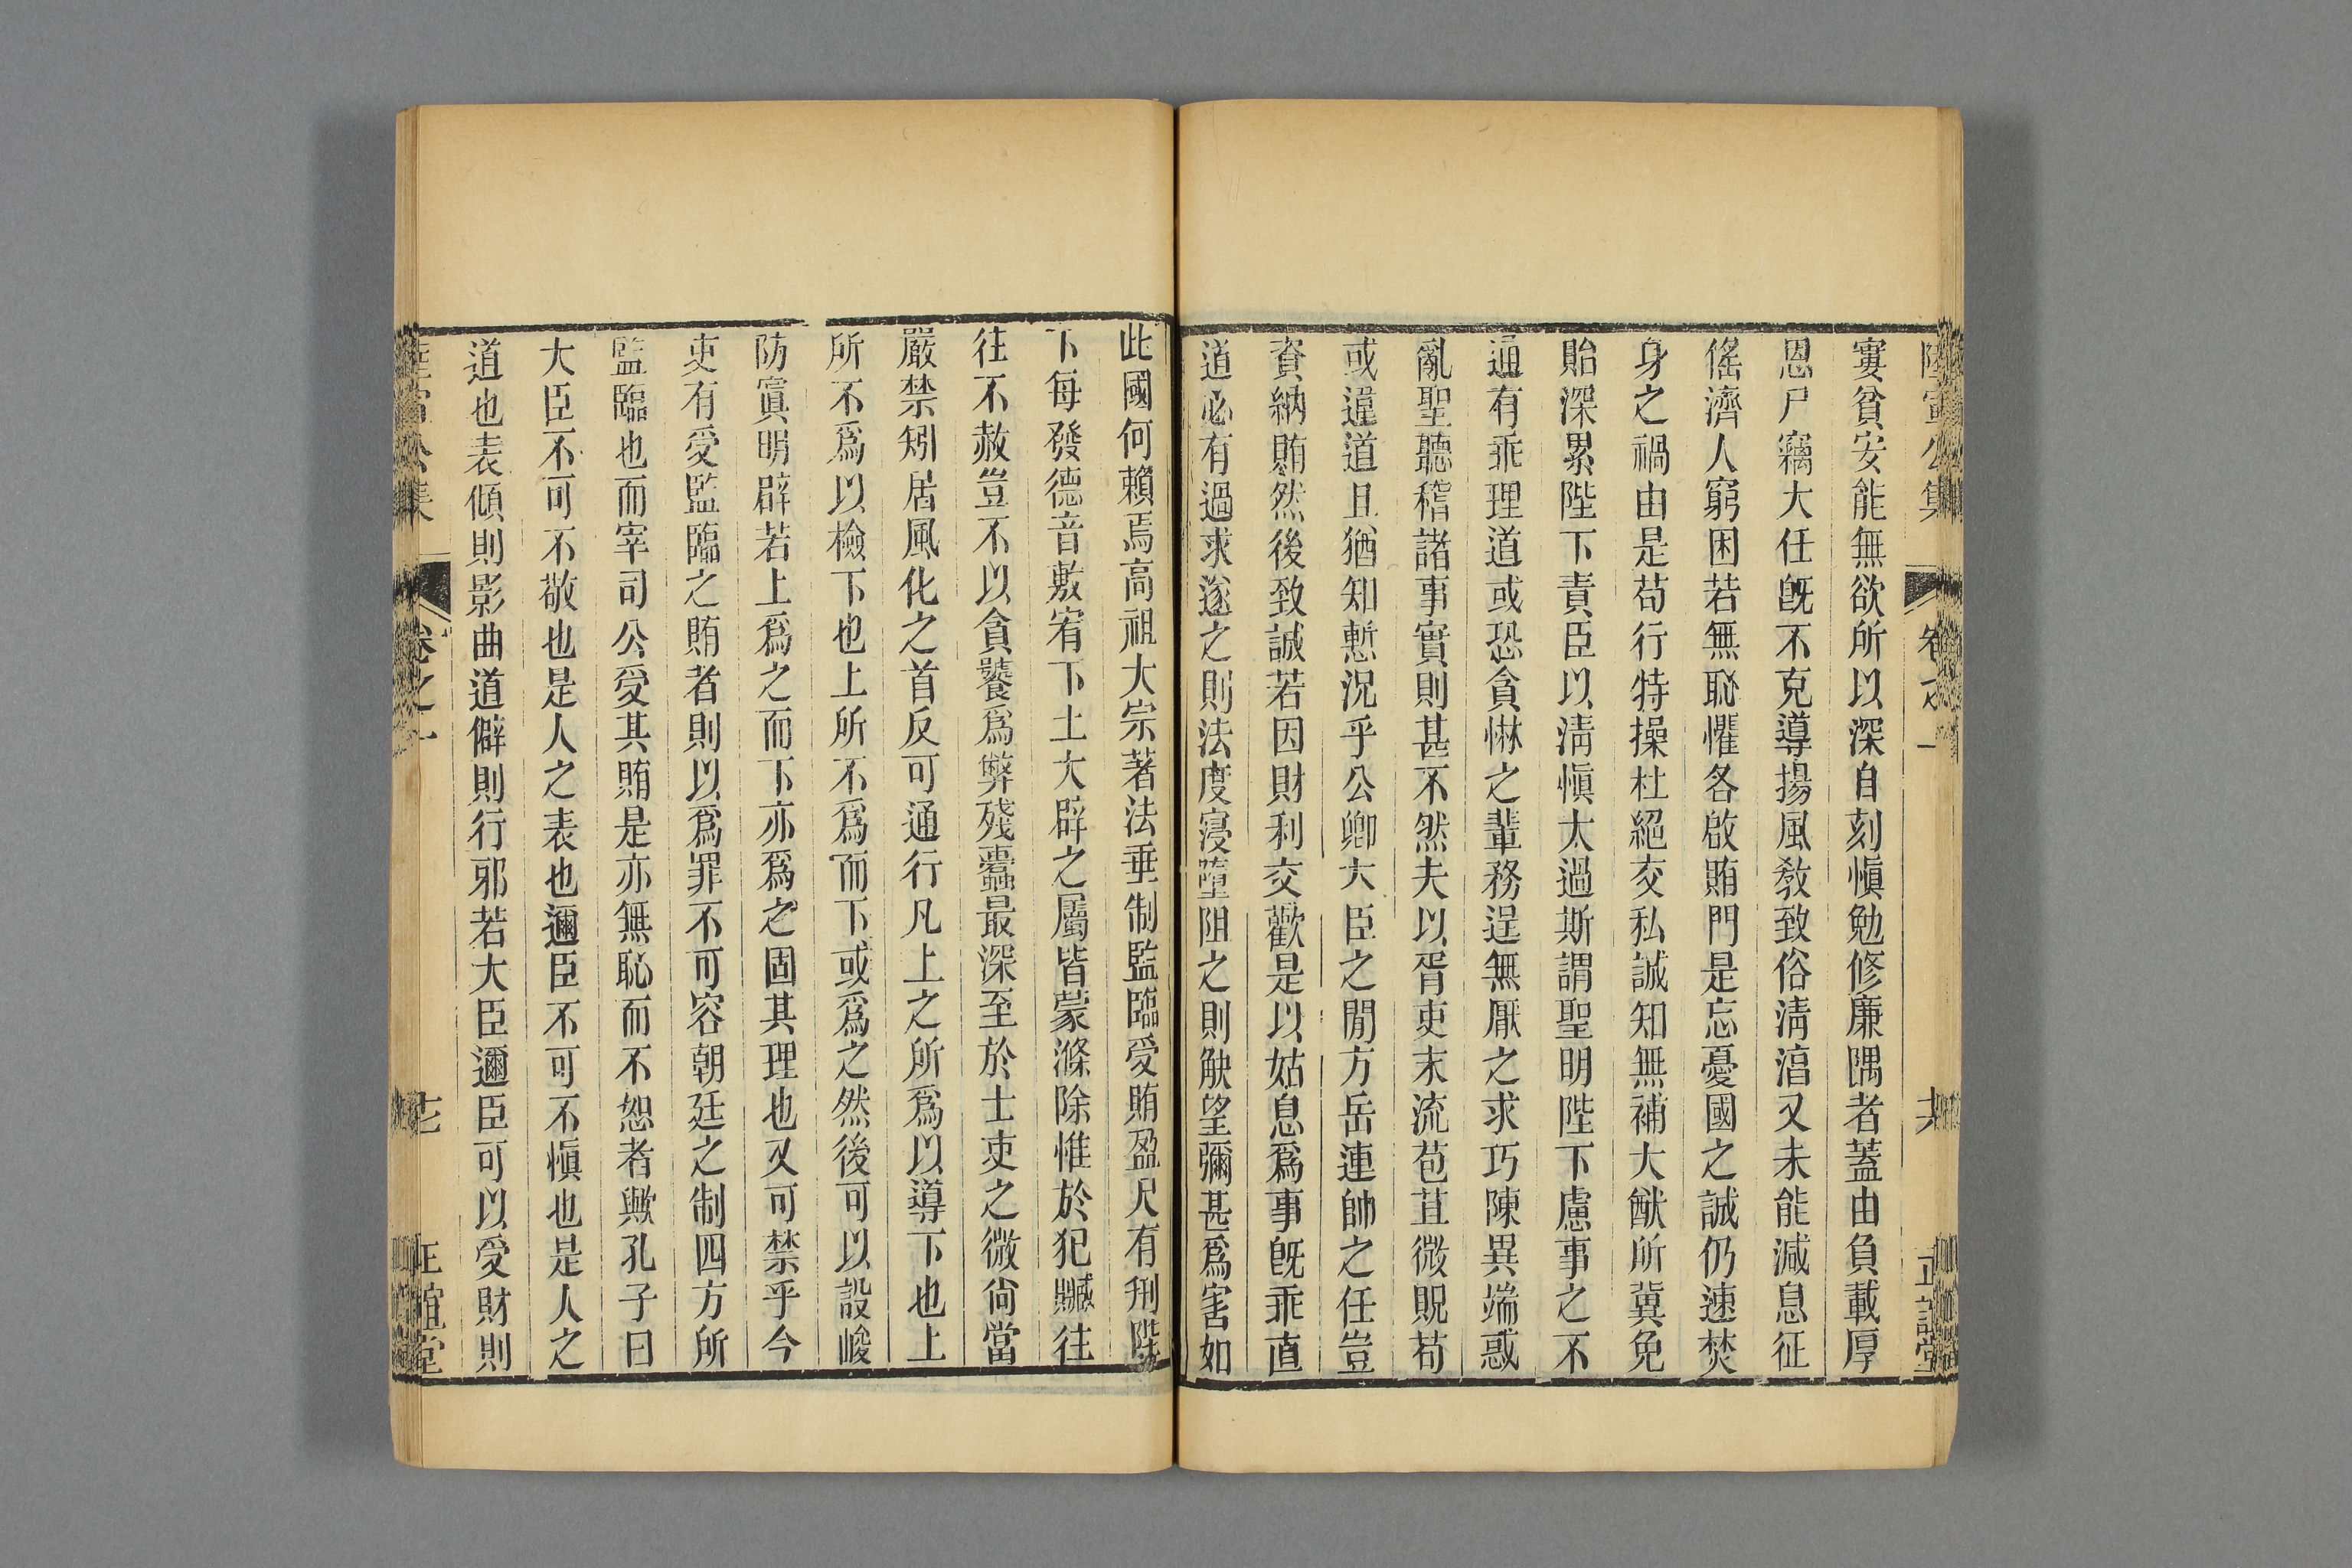 陸宣公集 卷之一 十六 正誼堂
寠貧安能無欲所以深自刻愼勉修廉隅者蓋由負載厚
恩尸竊大任旣不克導揚風敎致俗淸㴞又未能減息征
傜濟人窮困若無恥懼各啟賄門是忘憂國之誠仍速焚
身之禍由是苟行特操杜絕交私誠知無補大猷所冀免
貽深累陛下責臣以淸愼太過斯謂聖明陛下慮事之不
通有乖理道或恐貪惏之輩務逞無厭之求巧陳異端惑
亂聖聽稽諸事實則甚不然夫以胥吏末流苞苴微貺苟
或違道且猶知慙況乎公卿大臣之閒方岳連帥之任豈
資納賄然後致誠若因財利交歡是以姑息爲事旣乖直
道必有過求遂之則法度寖墮阻之則觖望彌甚爲害如
此國何賴焉高祖大宗著法垂制監臨受賄盈尺有刑陛
下每發德音敷宥下土大辟之屬皆蒙滌除惟於犯贓往
往不赦豈不以貪饕爲弊殘蠹最深至於士吏之微尙當
嚴禁矧居風化之首反可通行凡上之所爲以導下也上
所不爲以檢下也上所不爲而下或爲之然後可以設峻
防寘明辟若上爲之而下亦爲之固其理也又可禁乎今
吏有受監臨之賄者則以爲罪不可容朝廷之制四方所
監臨也而宰司公受其賄是亦無恥而不恕者歟孔子曰
大臣不可不敬也是人之表也邇臣不可不愼也是人之
道也表傾則影曲道僻則行邪若大臣邇臣可以受財則
陸宣公集 卷之一 十七 正誼堂